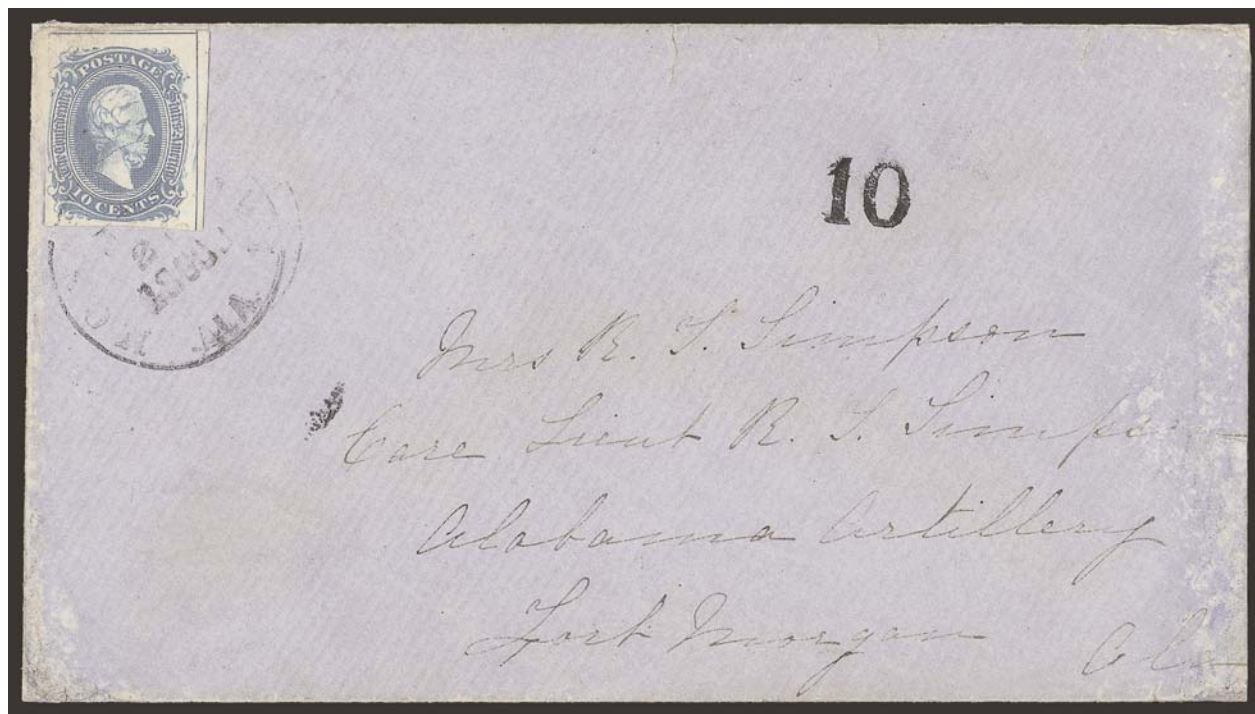 POSTAGE
The Confederate States America
10 CENTS
10
Mrs R. S. Simpson
Care Lieut R. S.
Alabama Artillery
Fort Morgan
Ala